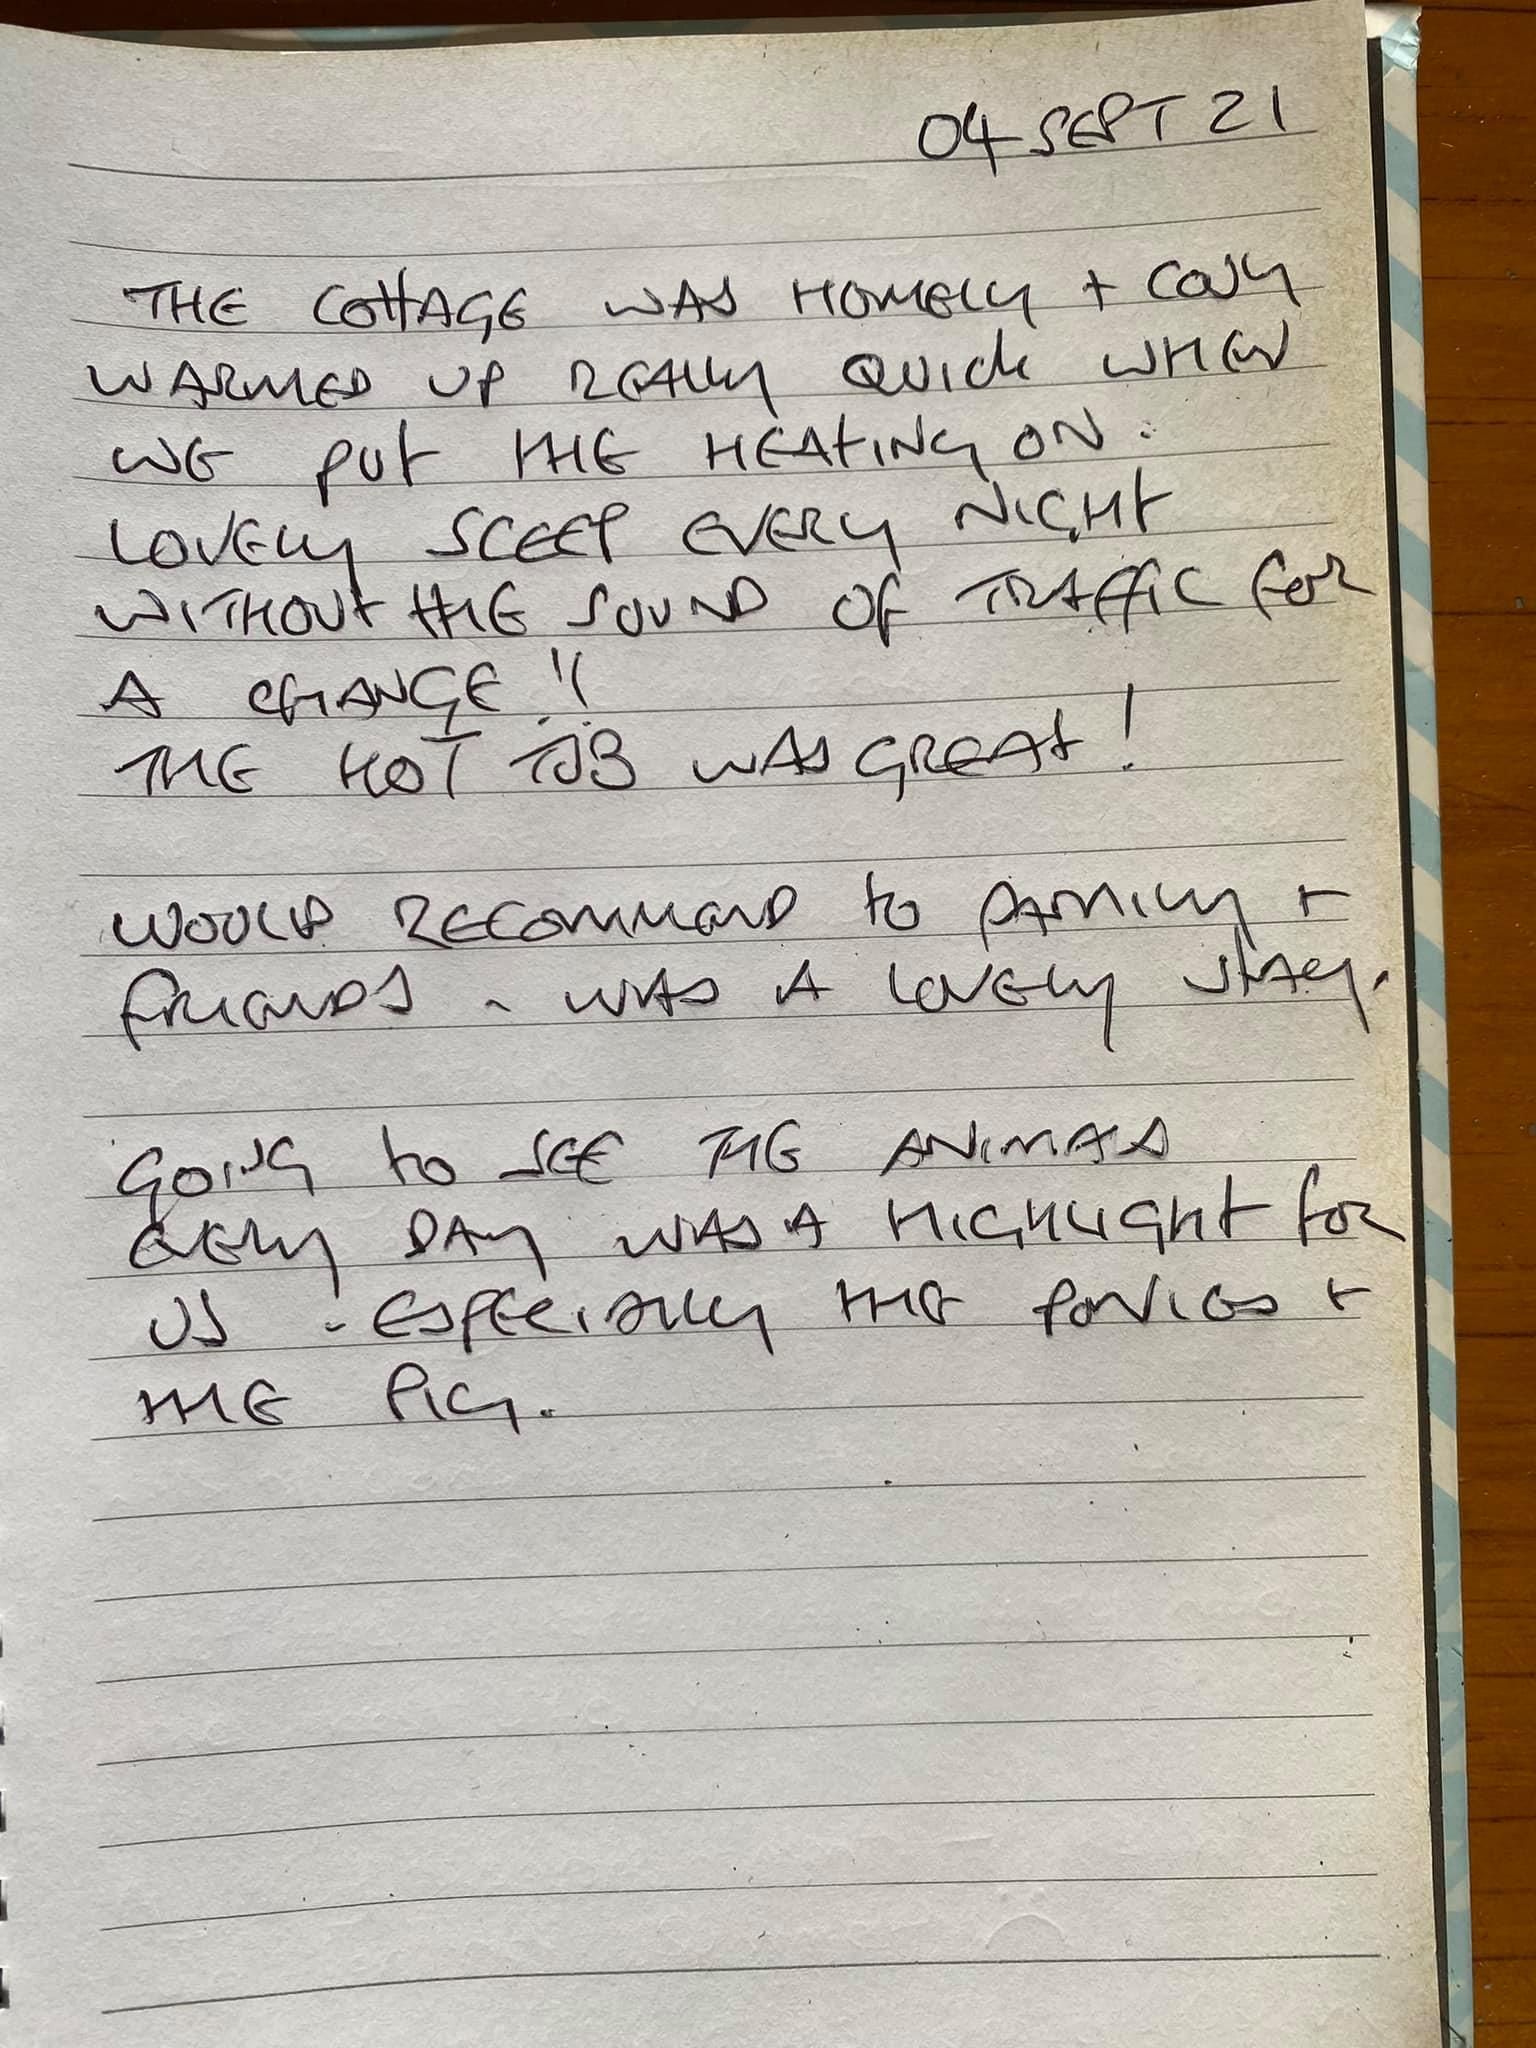 04 SEPT 21
THE COTTAGE WAS HOMELY + COSY
WARMED UP REALLY QUICK WHEN
WE PUT THE HEATING ON.
LOVELY SLEEP EVERY NIGHT
WITHOUT THE SOUND OF TRAFFIC FOR
A CHANGE!!
THE HOT TUB WAS GREAT!
WOULD RECOMMEND TO FAMILY +
FRIENDS - WAS A LOVELY STAY.
GOING TO SEE THE ANIMALS
EVERY DAY WAS A HIGHLIGHT FOR
US - ESPECIALLY THE PONIES +
THE PIG.